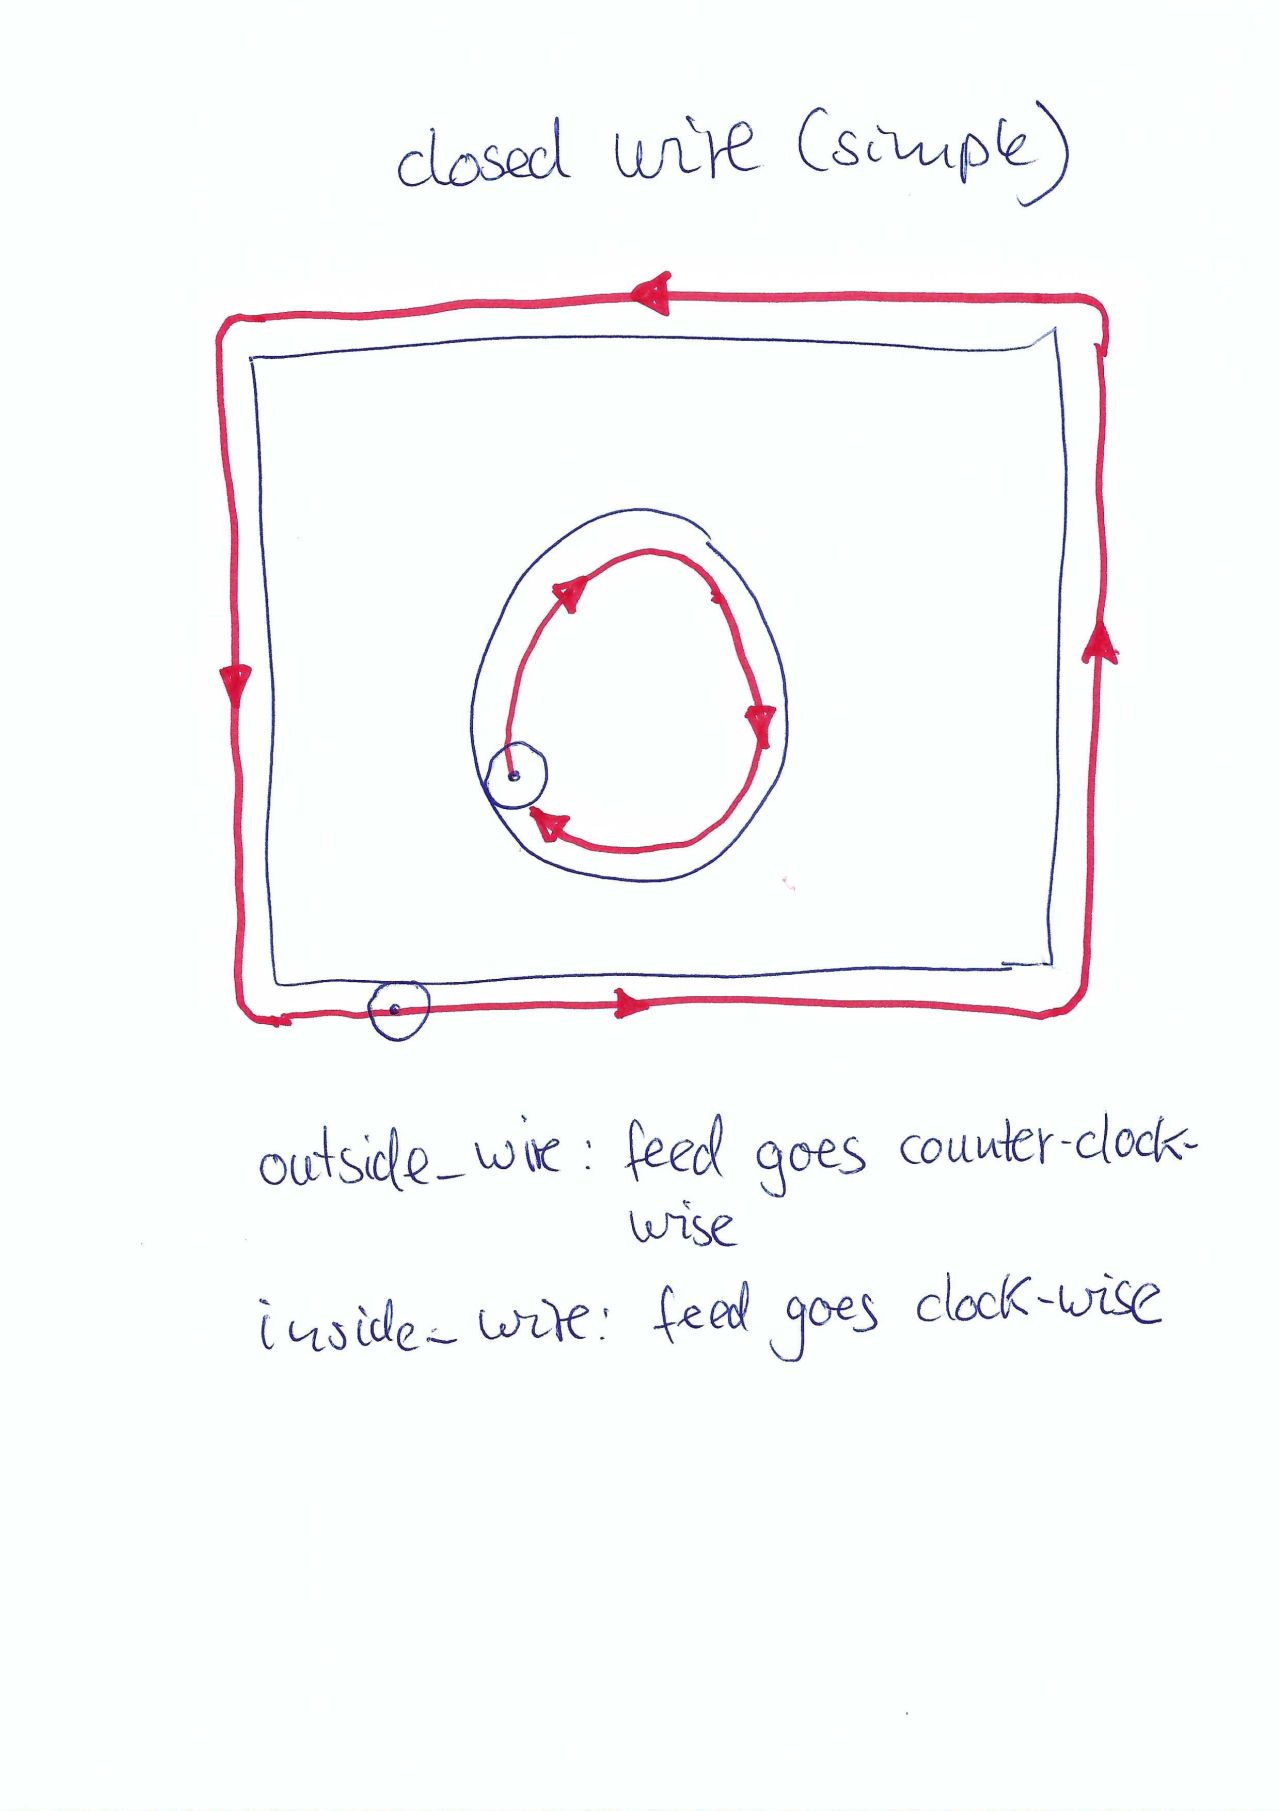 closed wire (simple)
outside_wire: feed goes counter-clock-
wise
inside_wire: feed goes clock-wise